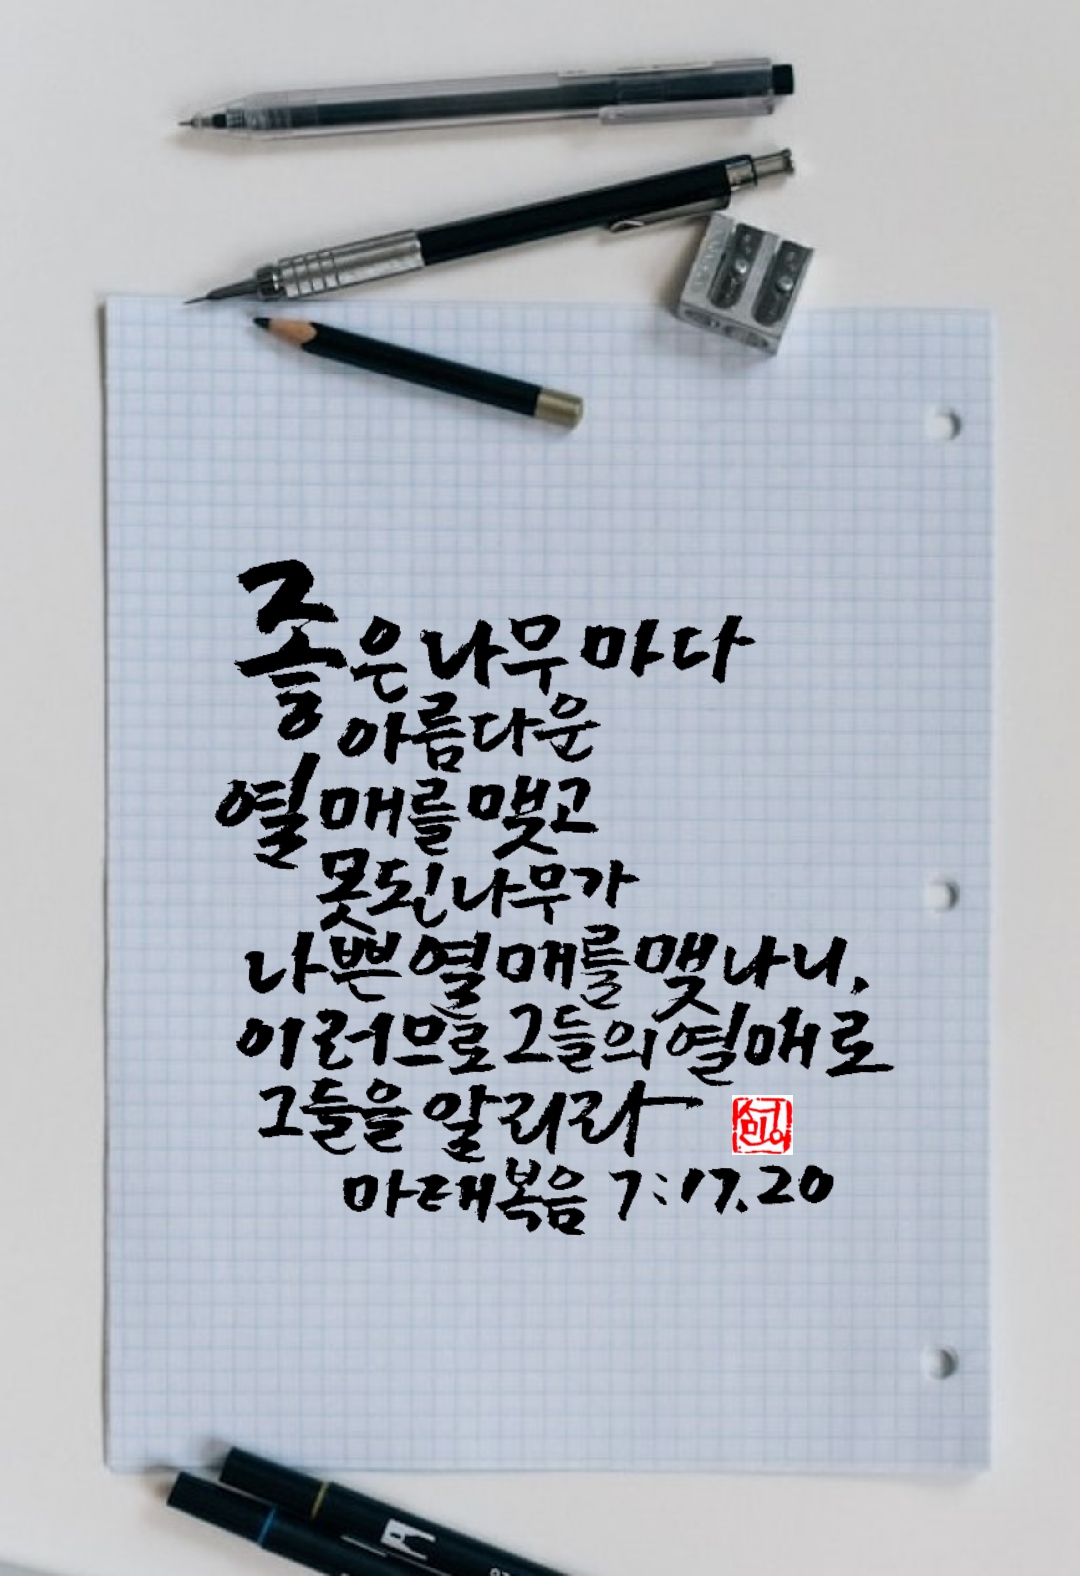 좋은나무마다
아름다운
열매를맺고
못된나무가
나쁜열매를맺나니.
이러므로그들의열매로
그들을알리라
마태복음 7:17.20